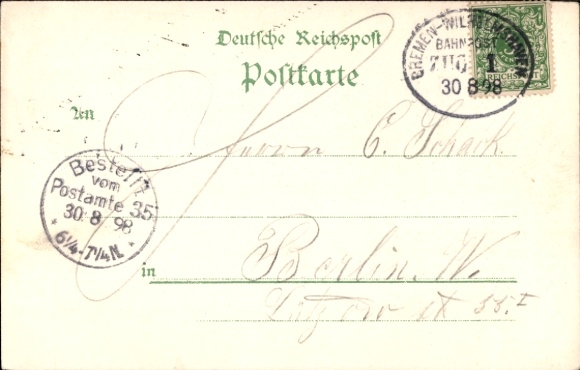 Deutsche Reichspost
Postkarte
BREMEN-WILHELMSHAVEN
BAHNPOST
ZUG 1
30 8 98
REICHSPOST
An
Herrn C. Schack
Bestellt
vom
Postamte 35
30 8 98
6¼-7¼N.
in
Berlin. W.
Lützow st 55. I